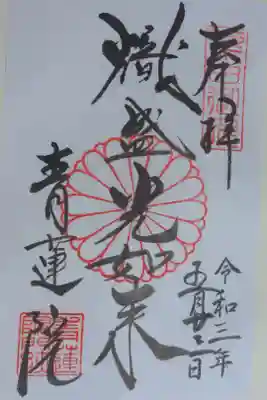 奉拝
令和三年
五月廿二日
熾盛光如来
青蓮院